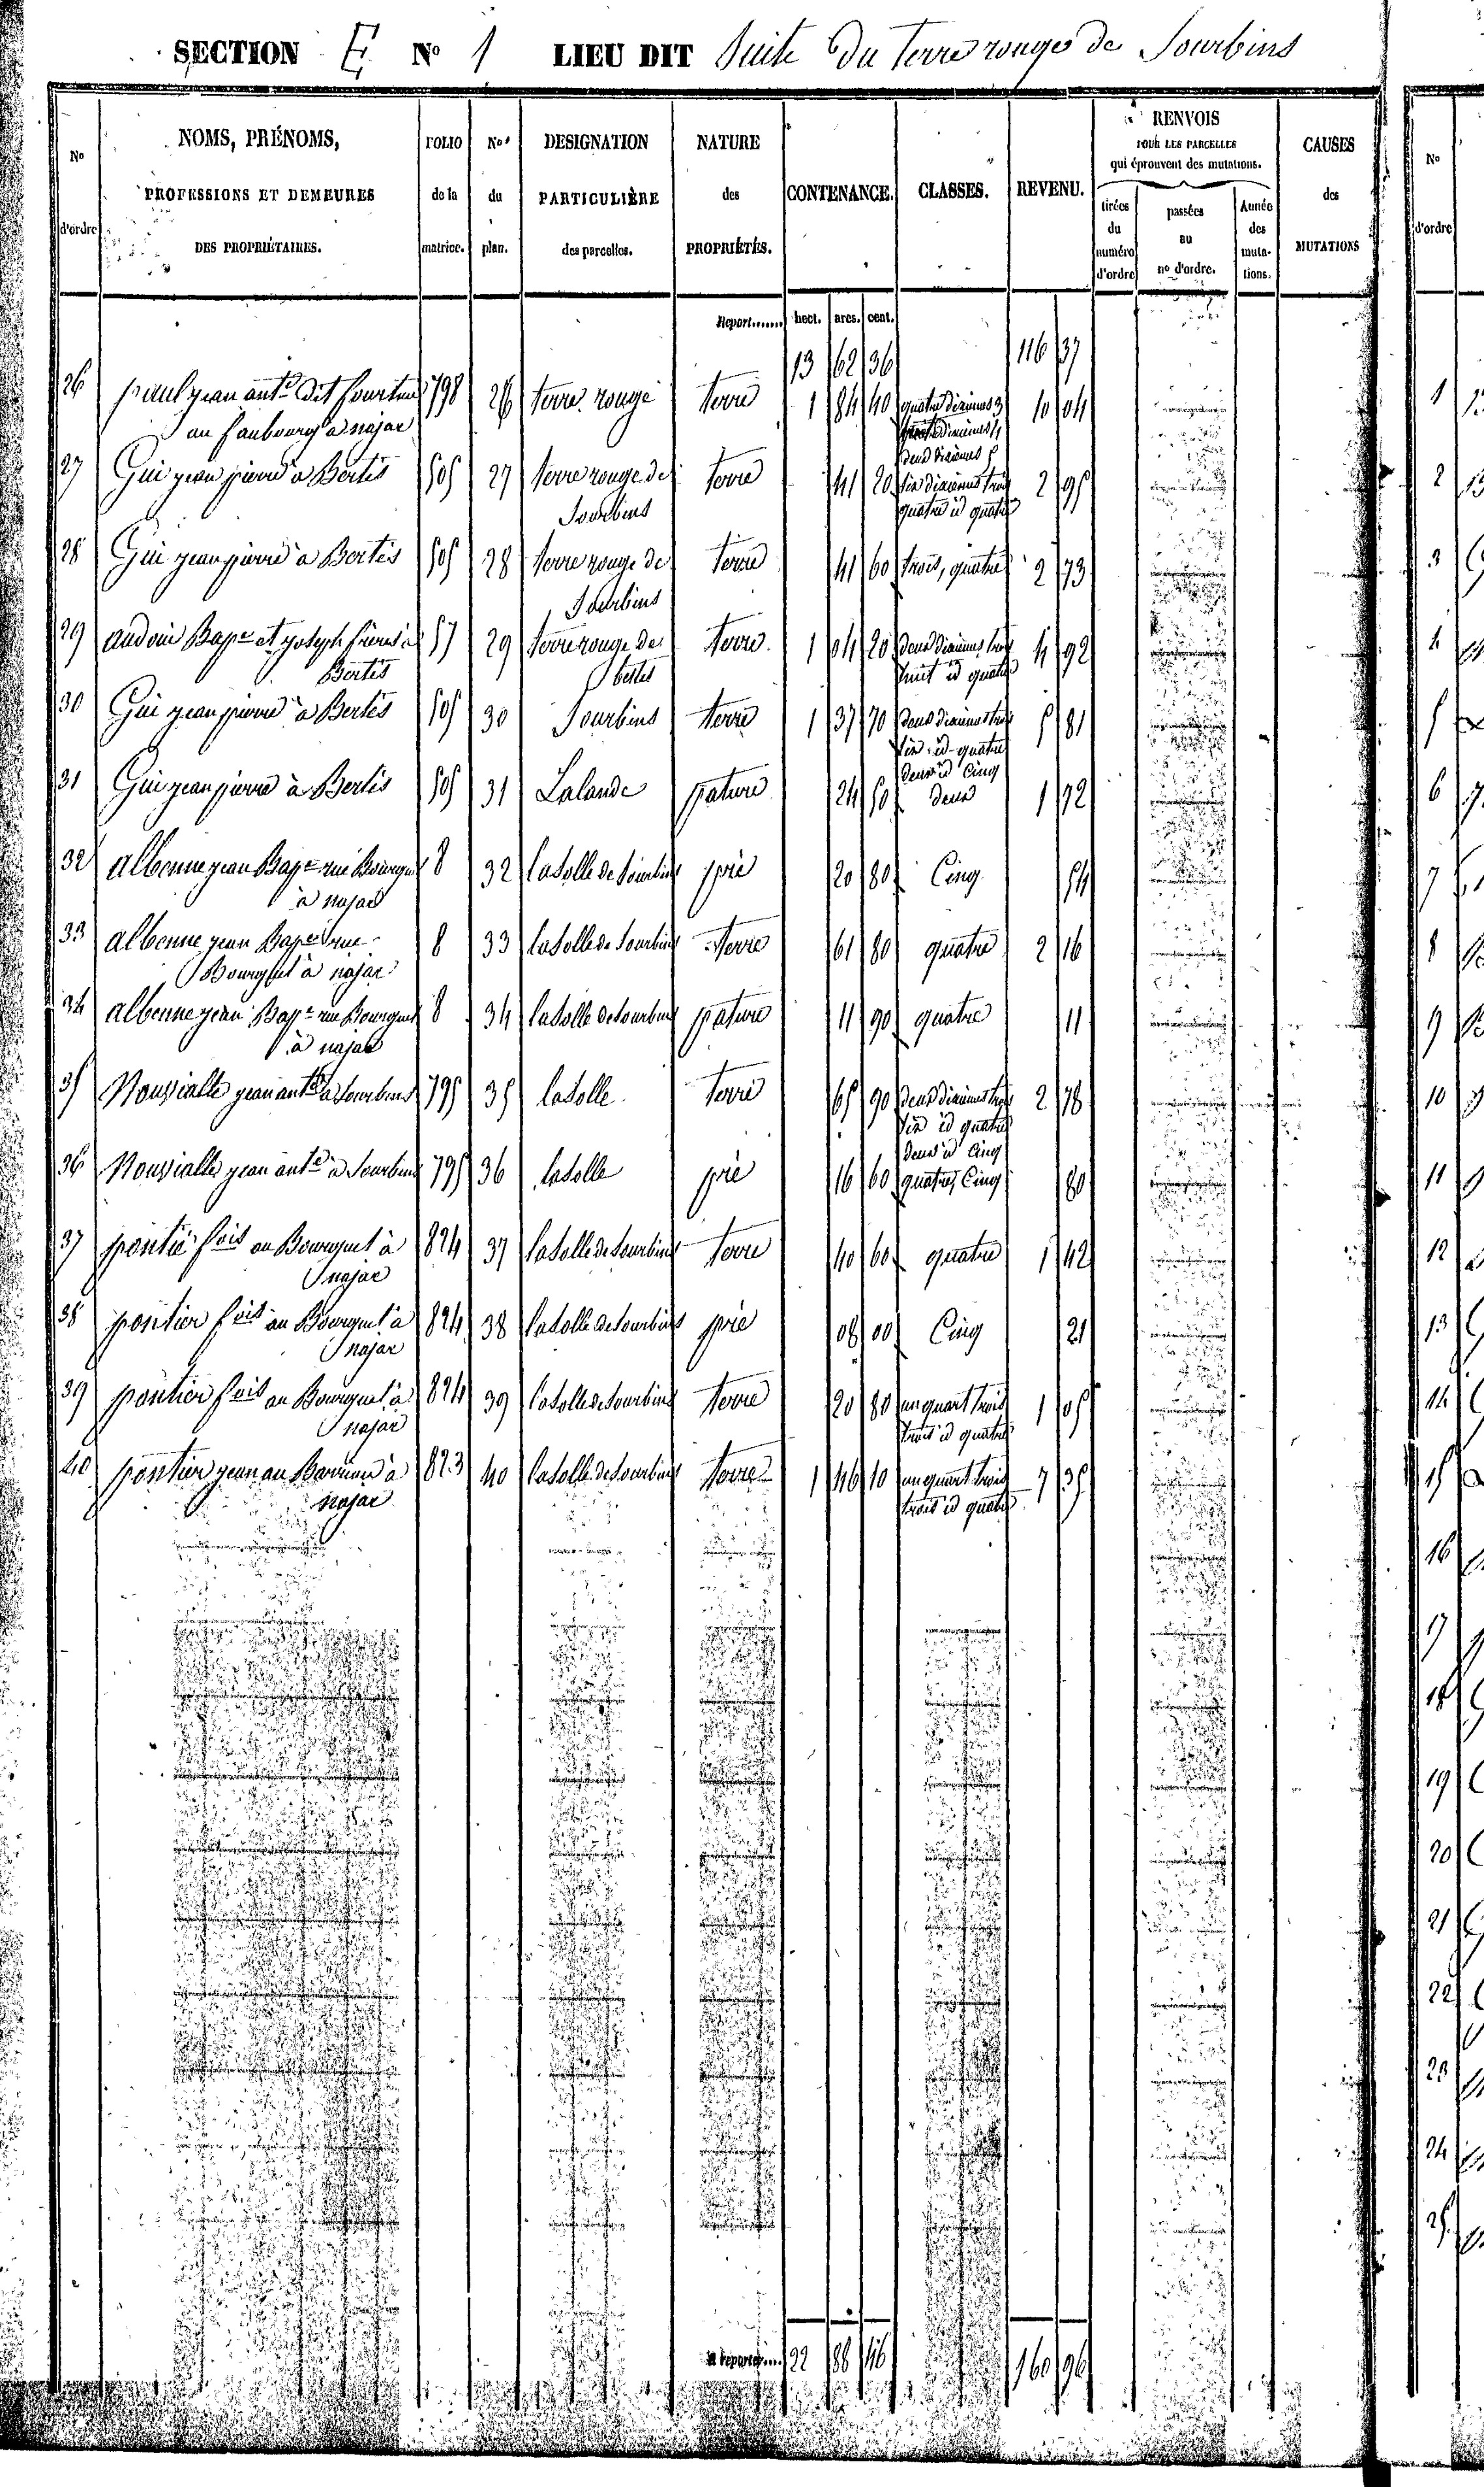 SECTION E N° 1 LIEU DIT Suite du Terre rouge de Sourbins
N° d'ordre
NOMS, PRÉNOMS, PROFESSIONS ET DEMEURES DES PROPRIÉTAIRES.
FOLIO de la matrice.
Nos du plan.
DESIGNATION PARTICULIÈRE des parcelles.
NATURE des PROPRIÉTÉS.
CONTENANCE.
CLASSES.
REVENU.
RENVOIS POUR LES PARCELLES qui éprouvent des mutations.
tirées du numéro d'ordre
passées au no d'ordre.
Année des mutations.
CAUSES des MUTATIONS
Report....... hect. ares. cent.
13 62 36 116 37
26 paul jean ante dit 798 26 terre rouge terre 1 84 40 quatre dixièmes 3 10 04
au faubourg a najac quatre dixièmes 4
deux dixièmes 5
27 Gui jean pierre à Bertés 505 27 terre rouge de terre 41 20 six dixièmes trois 2 95
Sourbins quatre id quatre
28 Gui jean pierre à Bertés 505 28 terre rouge de terre 41 60 trois, quatre 2 73
Sourbins
29 andoin Bape et joseph frères à 57 29 terre rouge de terre 1 04 20 deux dixièmes trois 4 92
Bertés bertés huit id quatre
30 Gui jean pierre à Bertés 505 30 Sourbins terre 1 37 70 deux dixièmes trois 5 81
six id quatre
deux id Cinq
31 Gui jean pierre à Bertés 505 31 Lalande pature 24 50 deux 1 72
32 albenne jean Bape rue Bourguet 8 32 lasolle de Sourbins pré 20 80 Cinq 54
à najac
33 albenne jean Bape rue 8 33 lasolle de Sourbins terre 61 80 quatre 2 16
Bourguet à najac
34 albenne jean Bape rue Bourguet 8 34 lasolle de Sourbins pature 11 90 quatre 11
à najac
35 Nouvialle jean ante à Sourbins 795 35 lasolle terre 65 90 deux dixièmes trois 2 78
six id quatre
deux id Cinq
36 Nouvialle jean ante à Sourbins 795 36 lasolle pré 16 60 quatre, Cinq 80
37 pontié fois au Bourguet à 824 37 lasolle de Sourbins terre 40 60 quatre 1 42
najac
38 pontier fois au Bourguet à 824 38 lasolle de Sourbins pré 08 00 Cinq 21
najac
39 pontier fois au Bourguet à 824 39 lasolle de Sourbins terre 20 80 un quart trois 1 05
najac trois id quatre
40 pontier jean au Barriou à 823 40 lasolle de Sourbins terre 1 46 10 un quart trois 7 35
najac trois id quatre
A reporter.... 22 88 46 160 96
N° d'ordre
1
2
3
4
5
6
7
8
9
10
11
12
13
14
15
16
17
18
19
20
21
22
23
24
25